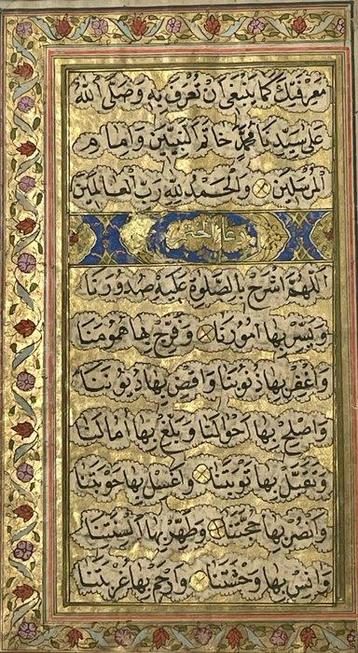 مَعْرِفَتِكَ كَمَا يَنْبَغِى اَنْ تُعْرَفَ بِهِ وَصَلَّى اللهُ
عَلَى سَيِّدِنَا مُحَمَّدٍ خَاتَمِ النَّبِيِّينَ وَاِمَامِ
الْمُرْسَلِينَ وَالْحَمْدُ لِلّٰهِ رَبِّ الْعَالَمِينَ
اَللّٰهُمَّ اشْرَحْ بِالصَّلٰوةِ عَلَيْهِ صُدُورَنَا
وَيَسِّرْ بِهَا اُمُورَنَا وَفَرِّجْ بِهَا هُمُومَنَا
وَاغْفِرْ بِهَا ذُنُوبَنَا وَاقْضِ بِهَا دُيُونَنَا
وَاَصْلِحْ بِهَا اَحْوَالَنَا وَبَلِّغْ بِهَا اٰمَالَنَا
وَتَقَبَّلْ بِهَا تَوْبَتَنَا وَاغْسِلْ بِهَا حَوْبَتَنَا
وَانْصُرْ بِهَا حُجَّتَنَا وَطَهِّرْ بِهَا اَلْسِنَتَنَا
وَاٰنِسْ بِهَا وَحْشَتَنَا وَارْحَمْ بِهَا غُرْبَتَنَا